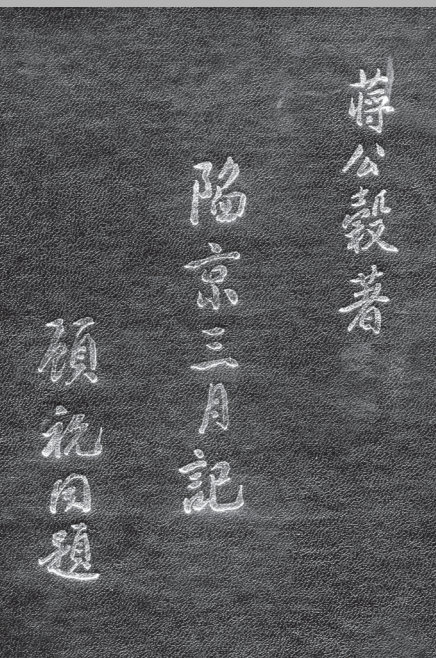 蔣公穀著
陷京三月記
顧祝同題